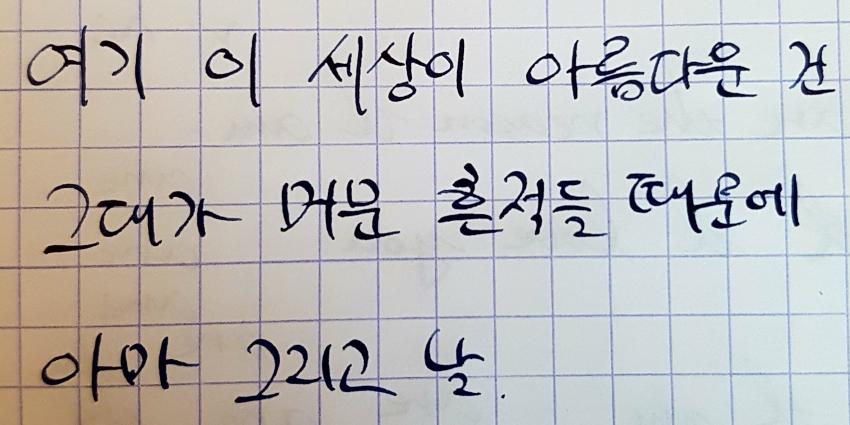 여기 이 세상이 아름다운 건
그대가 머문 흔적들 때문에
아마 그리고 날.